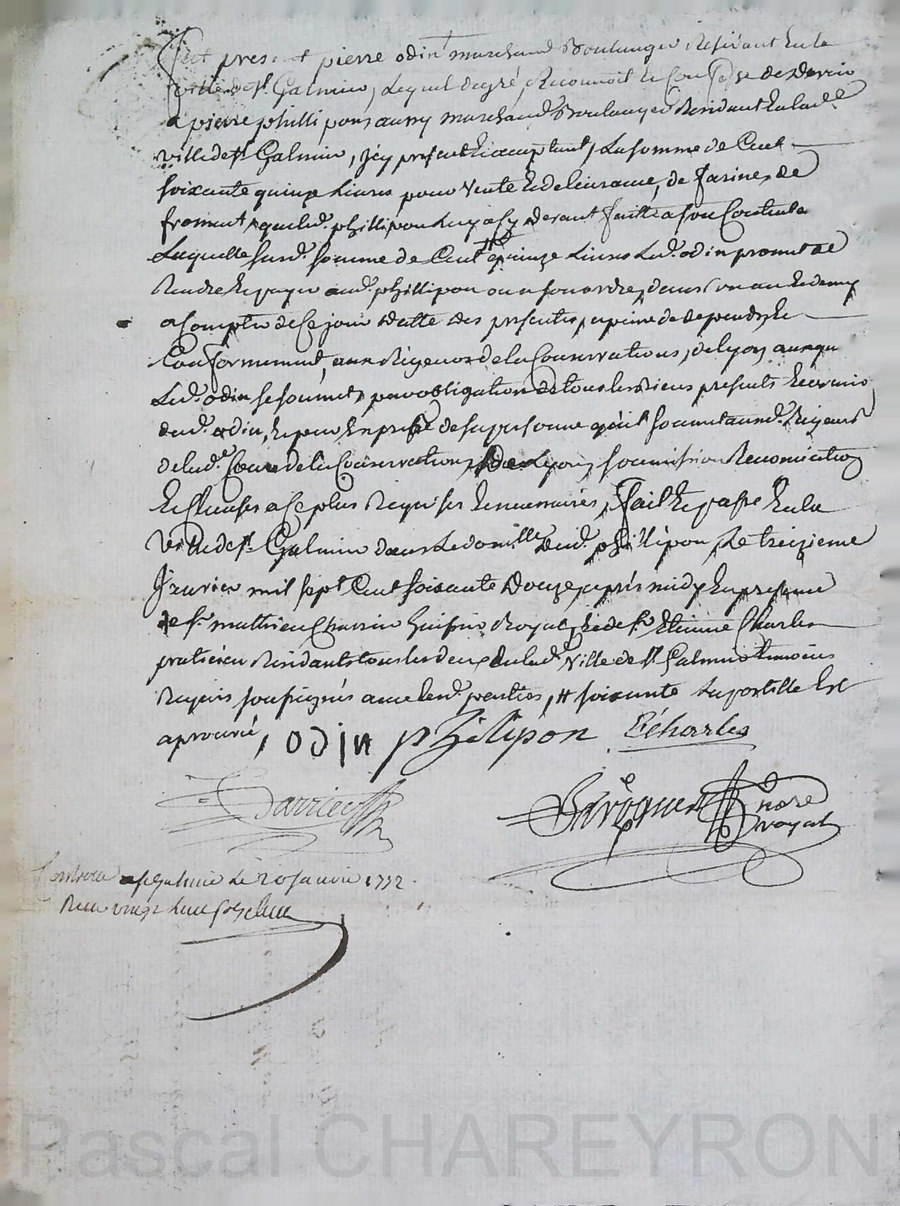 fut present pierre odin marchand Boulanger Residant En la
ville de St. Galmier, Lequel de gré, Reconnoit et Confesse devoir
a pierre phillipon aussy marchand Boulanger Residant En lad.
ville de St. Galmier, Jcy present Et acceptant, La somme de Cent
soixante quinze Livres pour vente Et delivrance, de farines de
froment, que led. phillipon Luy a cy devant faitte a son Contente
Laquelle susd. somme de Cent # quinze Livres Led. odin promet de
Rendre Et payer aud. phillipon ou a son ordre, dans un an Et demy
a Compter de Ce jour datte des presentes, a peine de depends, Et
Conformement, aux Rigeurs de la Conservations, de Lyon, auxqu
Led. odin se soumet, par obligation de tous les Biens presents Et avenir
dud. odin, Et par En prise de sa personne qu'il soumet auxd. Rigeurs
de lad. Cour de la Conservations, de Lyon, soumission Renonciation
Et Clauses a Ce plus Requises Et necessaires, fait Et passé En la
ville de St. Galmier dans Le domille dud. phillipon, Le treizieme
Janvier mil sept Cent soixante Douze, apres midy En presence
de Sr. mathieu Charrin huissier Royal, Et de Sr. Etienne Charles
praticien Residants tous les deux En lad. ville de St. Galmier temoins
Requis soussignés avec lesd. parties, # soixante La postille Est
aprouvé, odin phelipon E Charles
nore
royal
Controlé a St Galmier Le 20 janvier 1772.
Reçu vingt
Pascal CHAREYRON